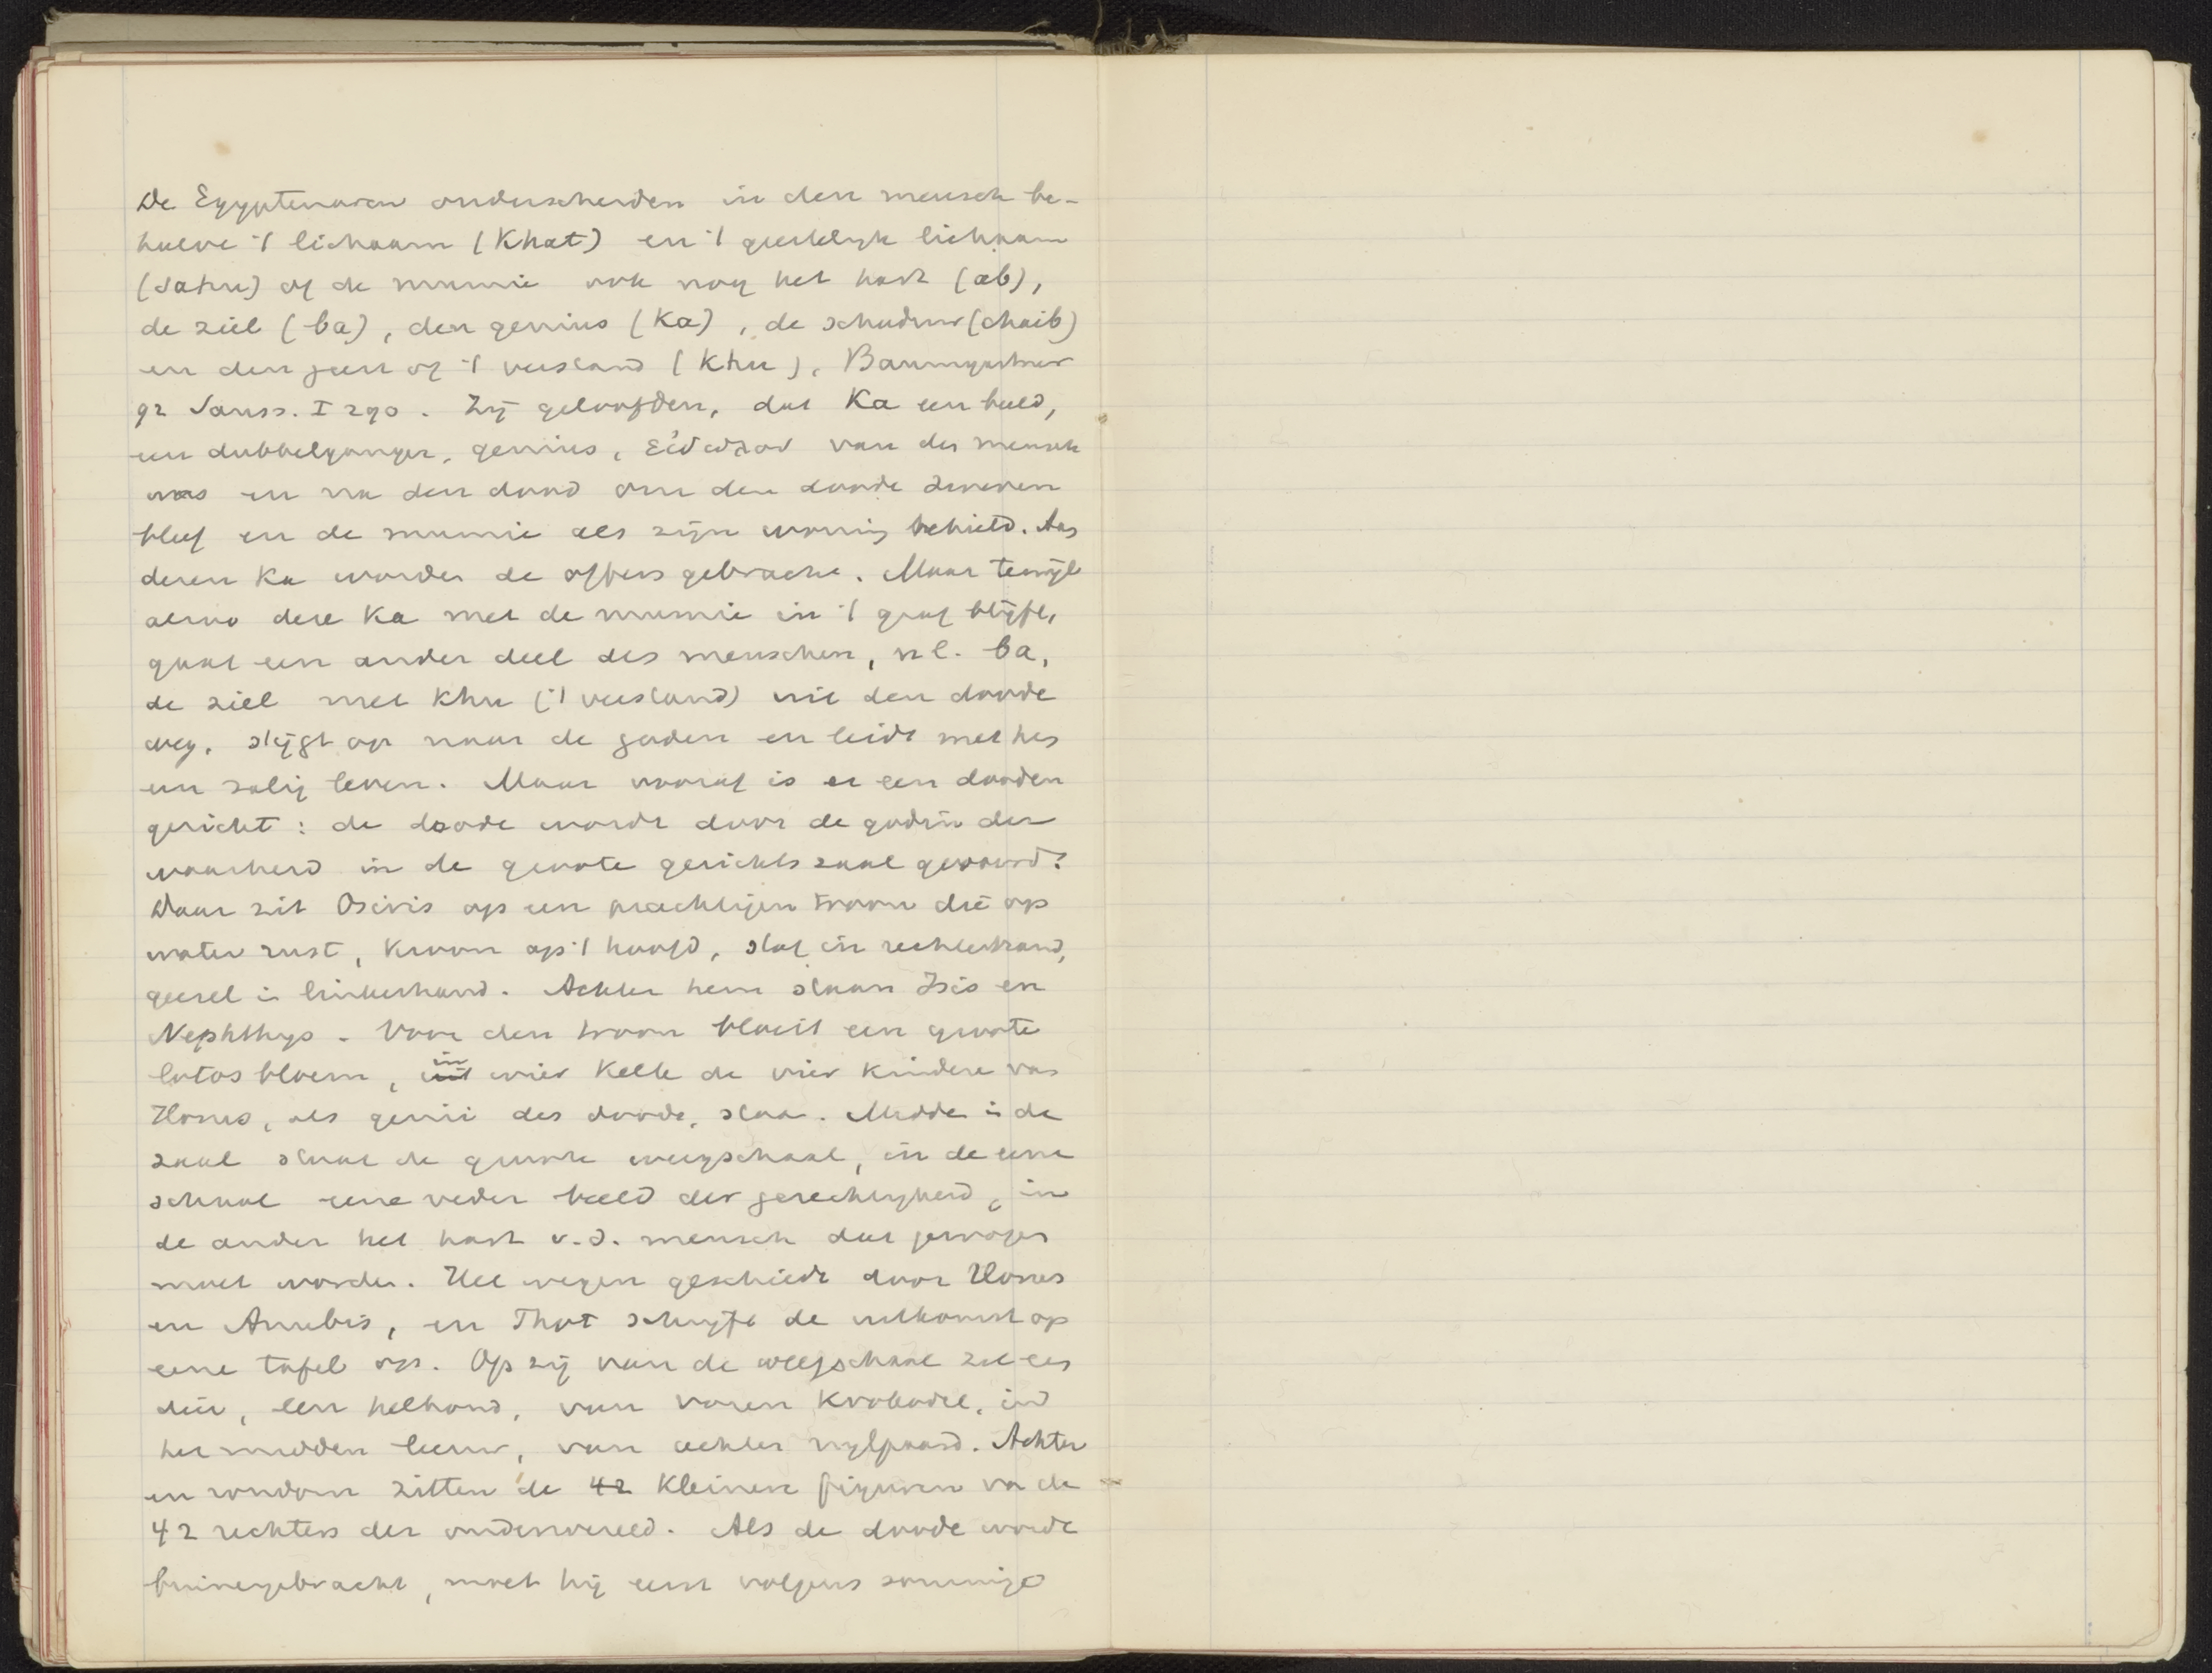 De Egyptenaren onderscheiden in den mensch be-
halve 't lichaam (Khat) en 't geestelijk lichaam
(Sahu) of de mumie ook nog het hart (ab),
de ziel (ba), den genius (Ka), de schaduw (chaib)
en den geest of 't verstand (Khu), Baumgartner
bij Sauss. I 290. Zij geloofden, dat Ka een beeld,
een dubbelganger, genius, εἴδωλον van den mensch
was en na den dood om den doode zweven
bleef en de mumie als zijn woning behield. Aan
dezen Ka worden de offers gebracht. Maar terwijl
alzoo deze Ka met de mumie in 't graf blijft,
gaat een ander deel des menschen, n.l. ba,
de ziel met Khu ('t verstand) uit den doode
weg, stijgt op naar de goden en leidt met hen
een zalig leven. Maar vooraf is er een dooden
gericht: de doode wordt door de godin der
waarheid in de groote gerichtszaal gevoerd.
Daar zit Osiris op een prachtigen troon die op
water rust, kroon op 't hoofd, staf in rechterhand,
geesel in linkerhand. Achter hem staan Isis en
Nephthys. Voor den troon bloeit een groote
lotosbloem, in wier kelk de vier kinderen van
Horus, als genii des doods, staan. Midden in de
zaal staat de groote weegschaal, in de eene
schaal eene veder beeld der gerechtigheid, in
de ander het hart v.d. mensch dat gewogen
moet worden. Het wegen geschiedt door Horus
en Anubis, en Thot schrijft de uitkomst op
eene tafel op. Op zij van de weegschaal zit een
dier, een helhond, van voren krokodil, in
het midden leeuw, van achter nijlpaard. Achter
en rondom zitten de 42 kleinere figuren van de
42 rechters der onderwereld. Als de doode wordt
binnengebracht, moet hij eerst volgens sommige